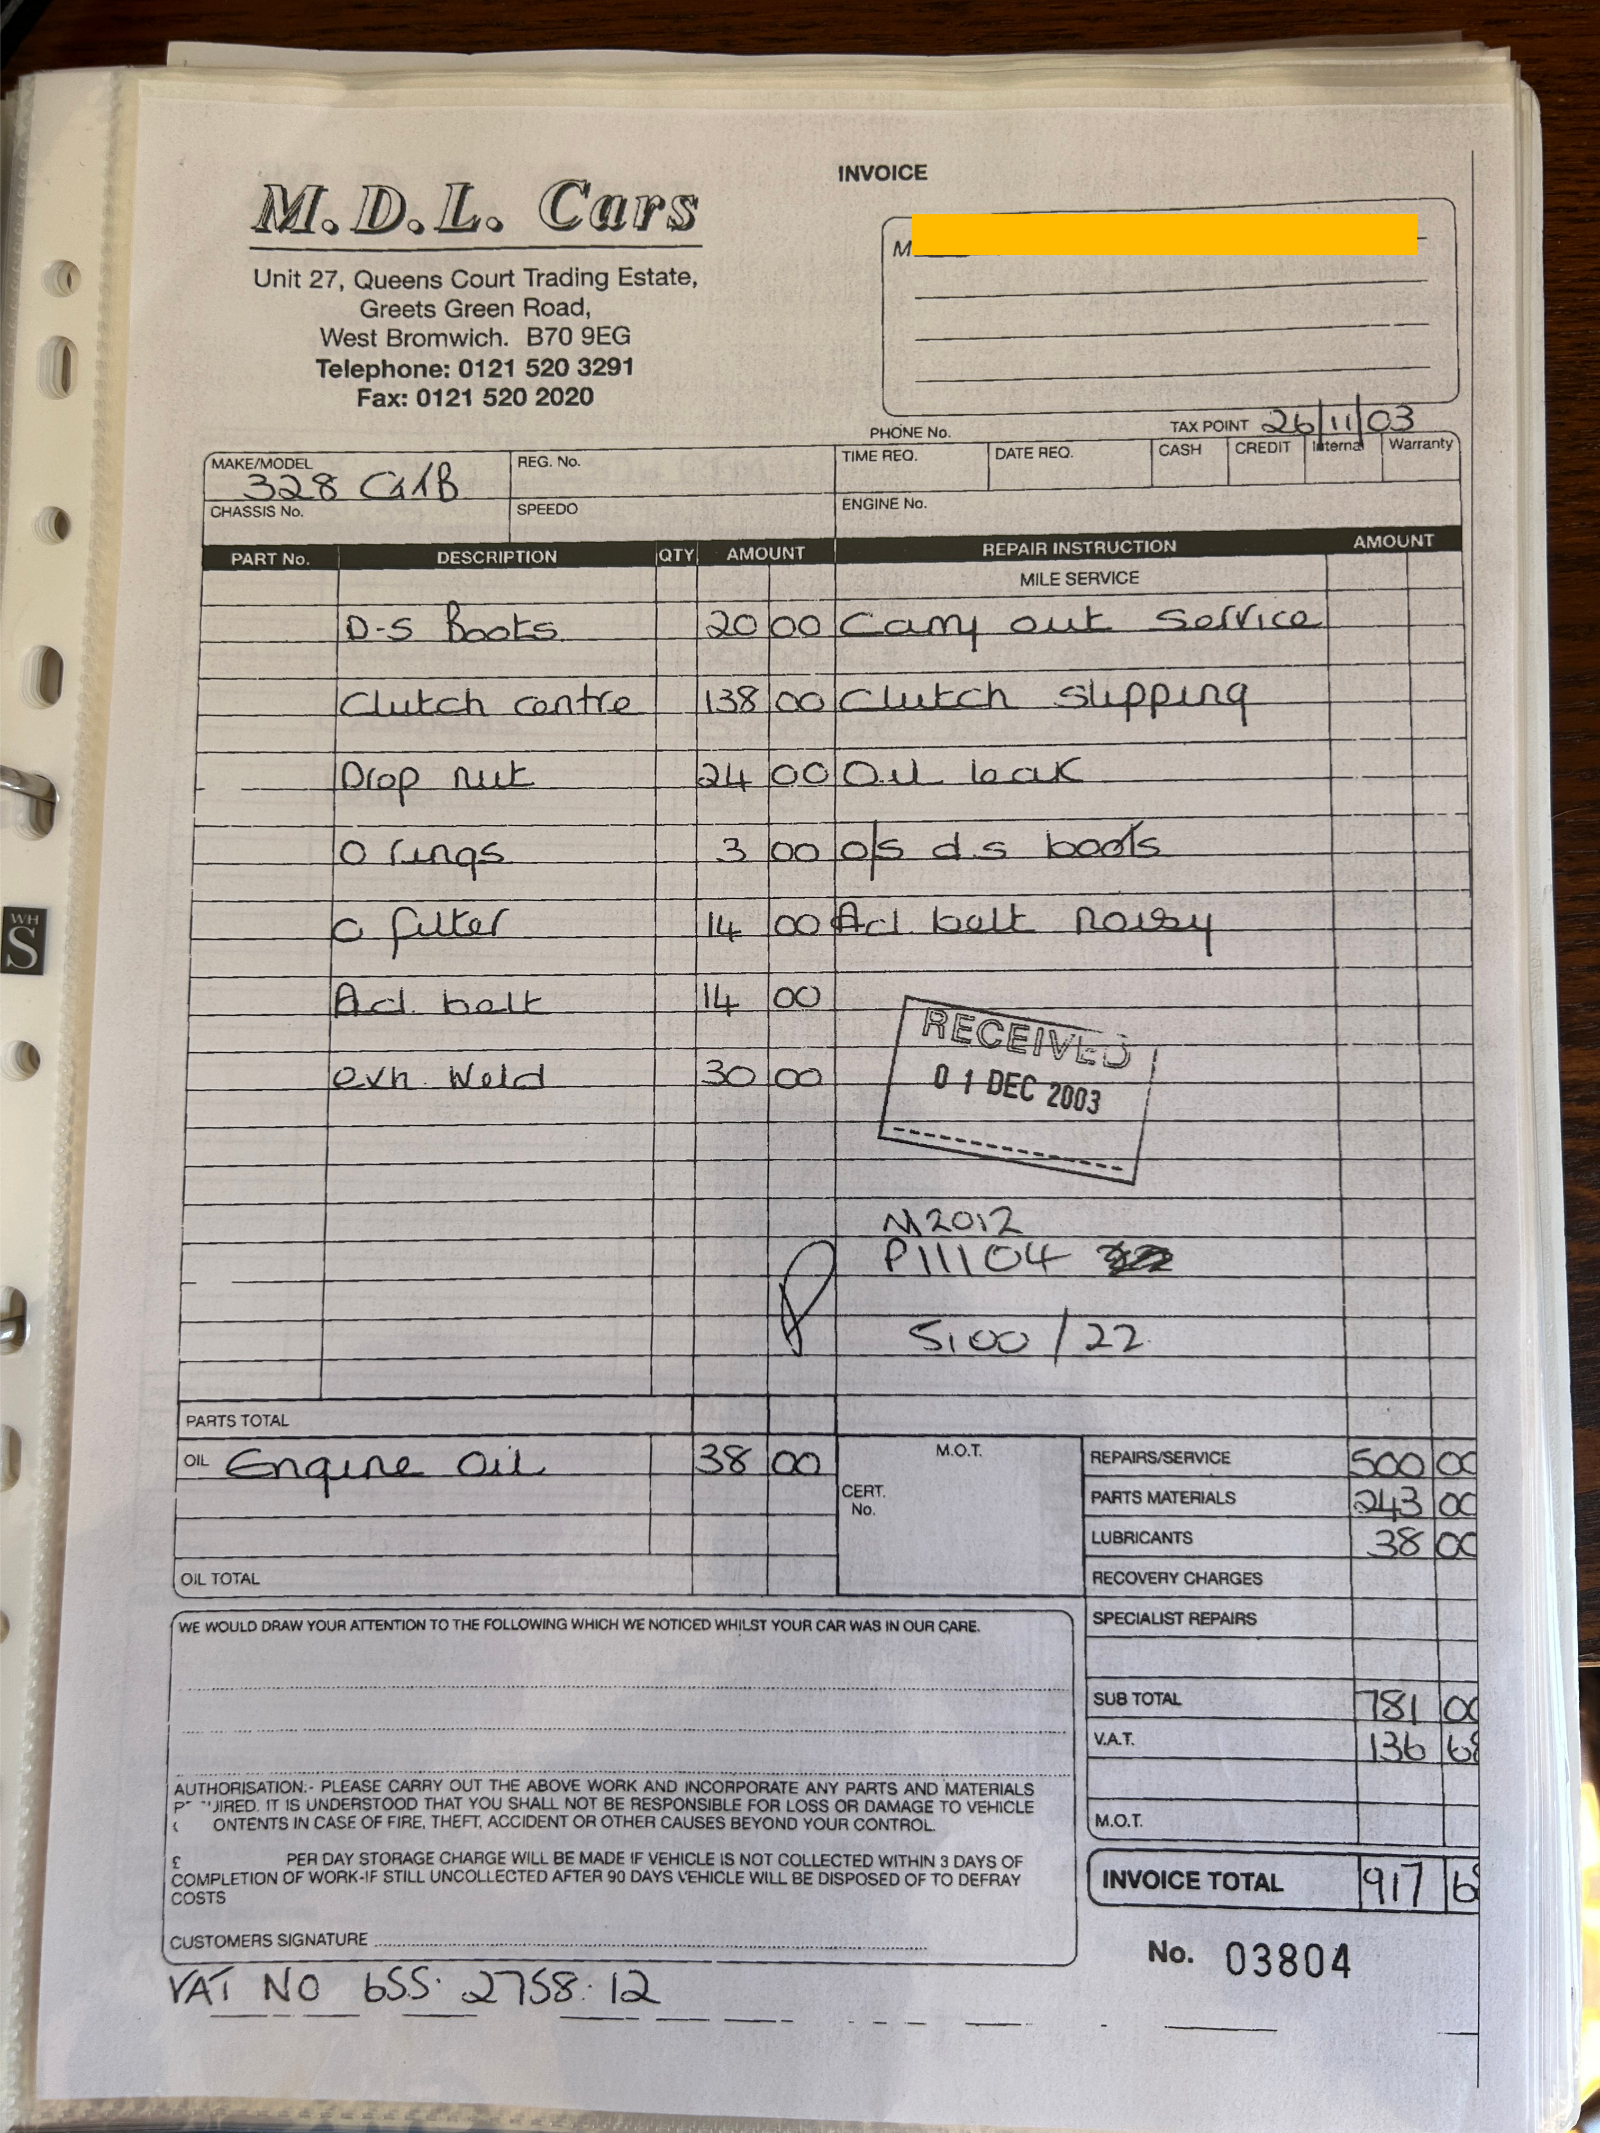 INVOICE
M.D.L. Cars
Unit 27, Queens Court Trading Estate,
Greets Green Road,
West Bromwich. B70 9EG
Telephone: 0121 520 3291
Fax: 0121 520 2020
M
PHONE No.
TAX POINT 26/11/03
MAKE/MODEL 328 GTB
REG. No.
TIME REQ.
DATE REQ.
CASH
CREDIT
Internal
Warranty
CHASSIS No.
SPEEDO
ENGINE No.
PART No. DESCRIPTION QTY AMOUNT REPAIR INSTRUCTION AMOUNT
MILE SERVICE
D-S Boots 20 00 Carry out Service
Clutch centre 138 00 Clutch slipping
Drop nut 24 00 Oil leak
O rings 3 00 o/s d.s boots
O filter 14 00 Acl. belt noisy
Acl. belt 14 00
exh. Weld 30 00
RECEIVED
01 DEC 2003
M2012
P11104
5100/22
PARTS TOTAL
OIL Engine Oil 38 00
OIL TOTAL
M.O.T.
CERT.
No.
REPAIRS/SERVICE 500 00
PARTS MATERIALS 243 00
LUBRICANTS 38 00
RECOVERY CHARGES
SPECIALIST REPAIRS
SUB TOTAL 781 00
V.A.T. 136 68
M.O.T.
INVOICE TOTAL 917 68
No. 03804
WE WOULD DRAW YOUR ATTENTION TO THE FOLLOWING WHICH WE NOTICED WHILST YOUR CAR WAS IN OUR CARE.
AUTHORISATION:- PLEASE CARRY OUT THE ABOVE WORK AND INCORPORATE ANY PARTS AND MATERIALS
IT IS UNDERSTOOD THAT YOU SHALL NOT BE RESPONSIBLE FOR LOSS OR DAMAGE TO VEHICLE
ONTENTS IN CASE OF FIRE, THEFT, ACCIDENT OR OTHER CAUSES BEYOND YOUR CONTROL.
£ PER DAY STORAGE CHARGE WILL BE MADE IF VEHICLE IS NOT COLLECTED WITHIN 3 DAYS OF
COMPLETION OF WORK-IF STILL UNCOLLECTED AFTER 90 DAYS VEHICLE WILL BE DISPOSED OF TO DEFRAY
COSTS
CUSTOMERS SIGNATURE
VAT NO 655. 2758. 12
WH
S